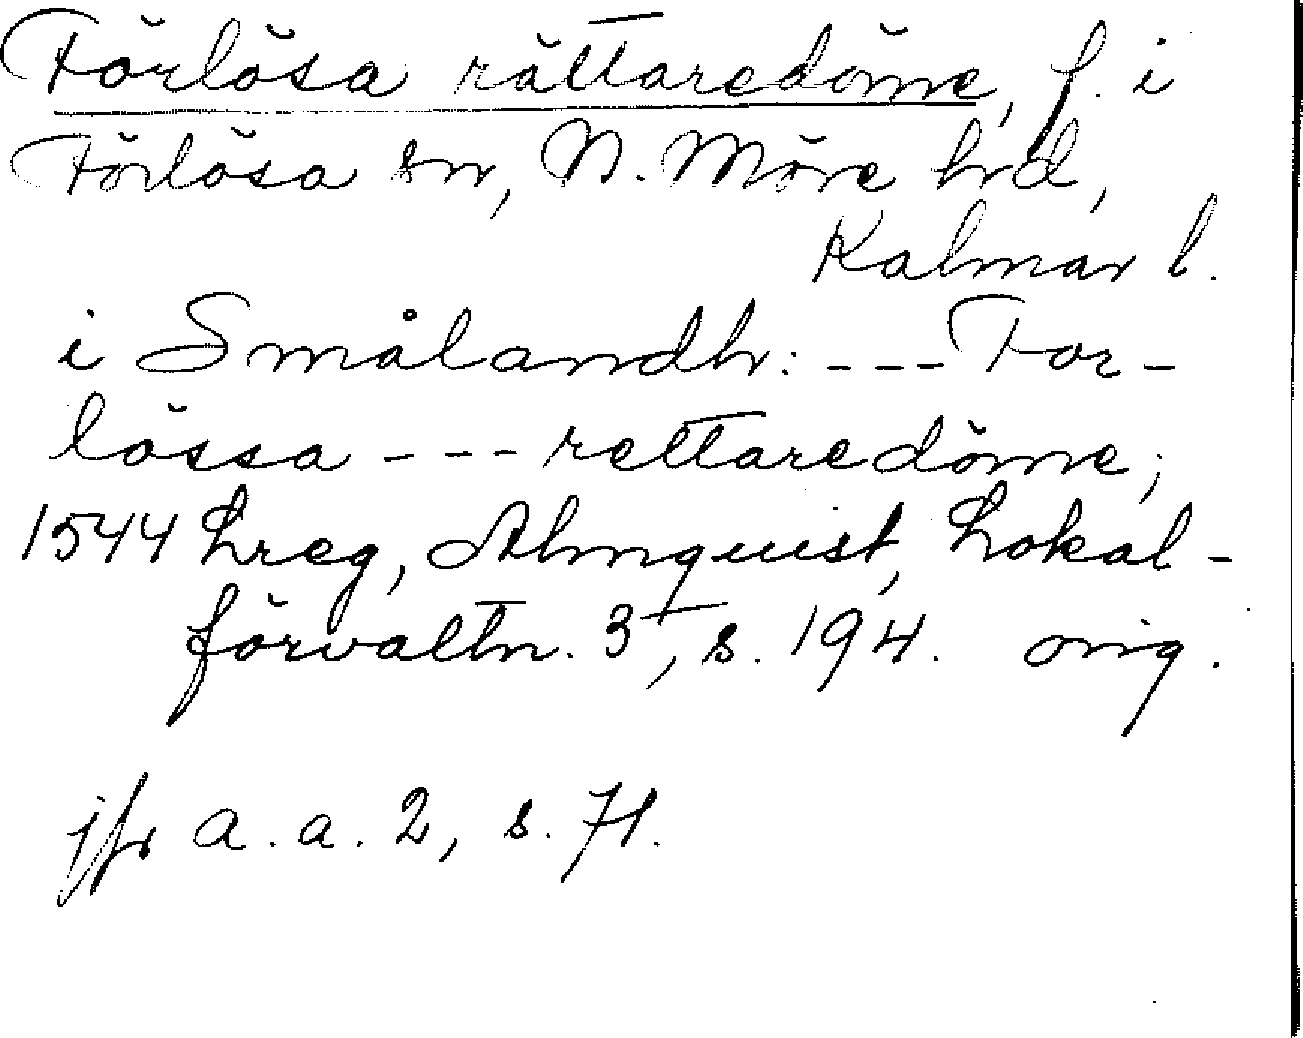 Förlösa rättaredöme, f. i
Förlösa sn, N. Möre hd,
Kalmar l.
i Smålandh: --- For-
lössa --- rettaredöme;
1544 Lreg, Almquist, Lokal-
förvaltn. 3, s. 194. orig.
jfr a. a. 2, s. 71.